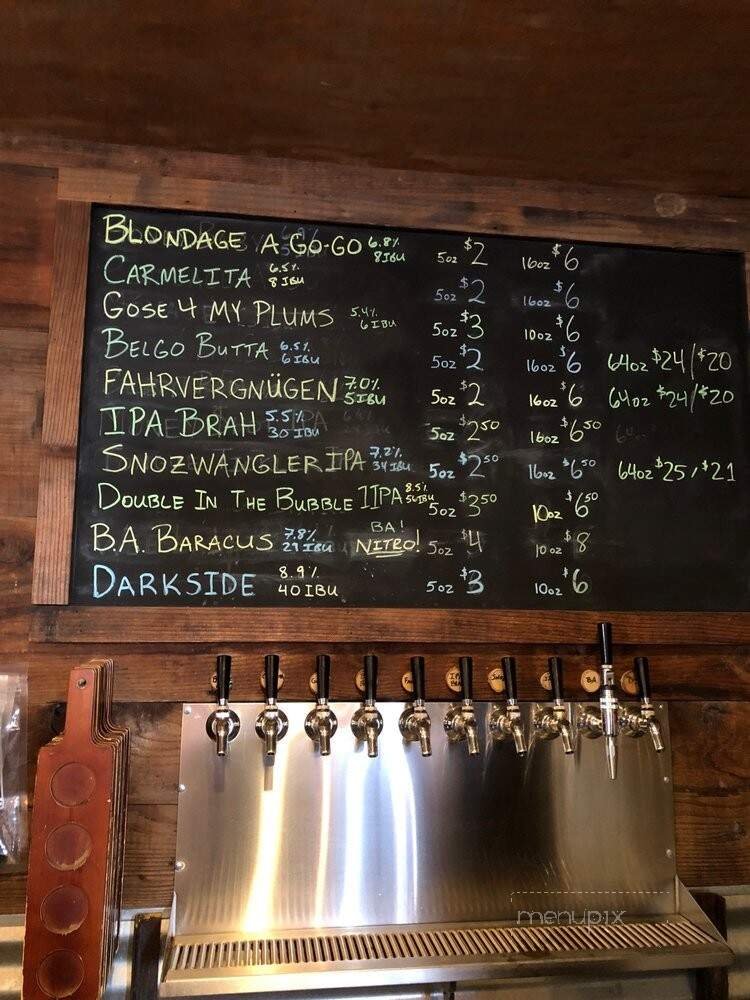 BLONDAGE A GO-GO 6.8% 8 IBU 5oz $2 16oz $6
CARMELITA 6.5% 8 IBU 5oz $2 16oz $6
GOSE 4 MY PLUMS 5.4% 6 IBU 5oz $3 10oz $6
BELGO BUTTA 6.5% 6 IBU 5oz $2 16oz $6 64oz $24/$20
FAHRVERGNÜGEN 7.0% 5 IBU 5oz $2 16oz $6 64oz $24/$20
IPA BRAH 5.5% 30 IBU 5oz $2.50 16oz $6.50
SNOZWANGLER IPA 7.2% 34 IBU 5oz $2.50 16oz $6.50 64oz $25/$21
DOUBLE IN THE BUBBLE IIPA 8.5% 56 IBU 5oz $3.50 10oz $6.50
B.A. BARACUS 7.8% 29 IBU BA! NITRO! 5oz $4 10oz $8
DARKSIDE 8.9% 40 IBU 5oz $3 10oz $6
BA
menupix